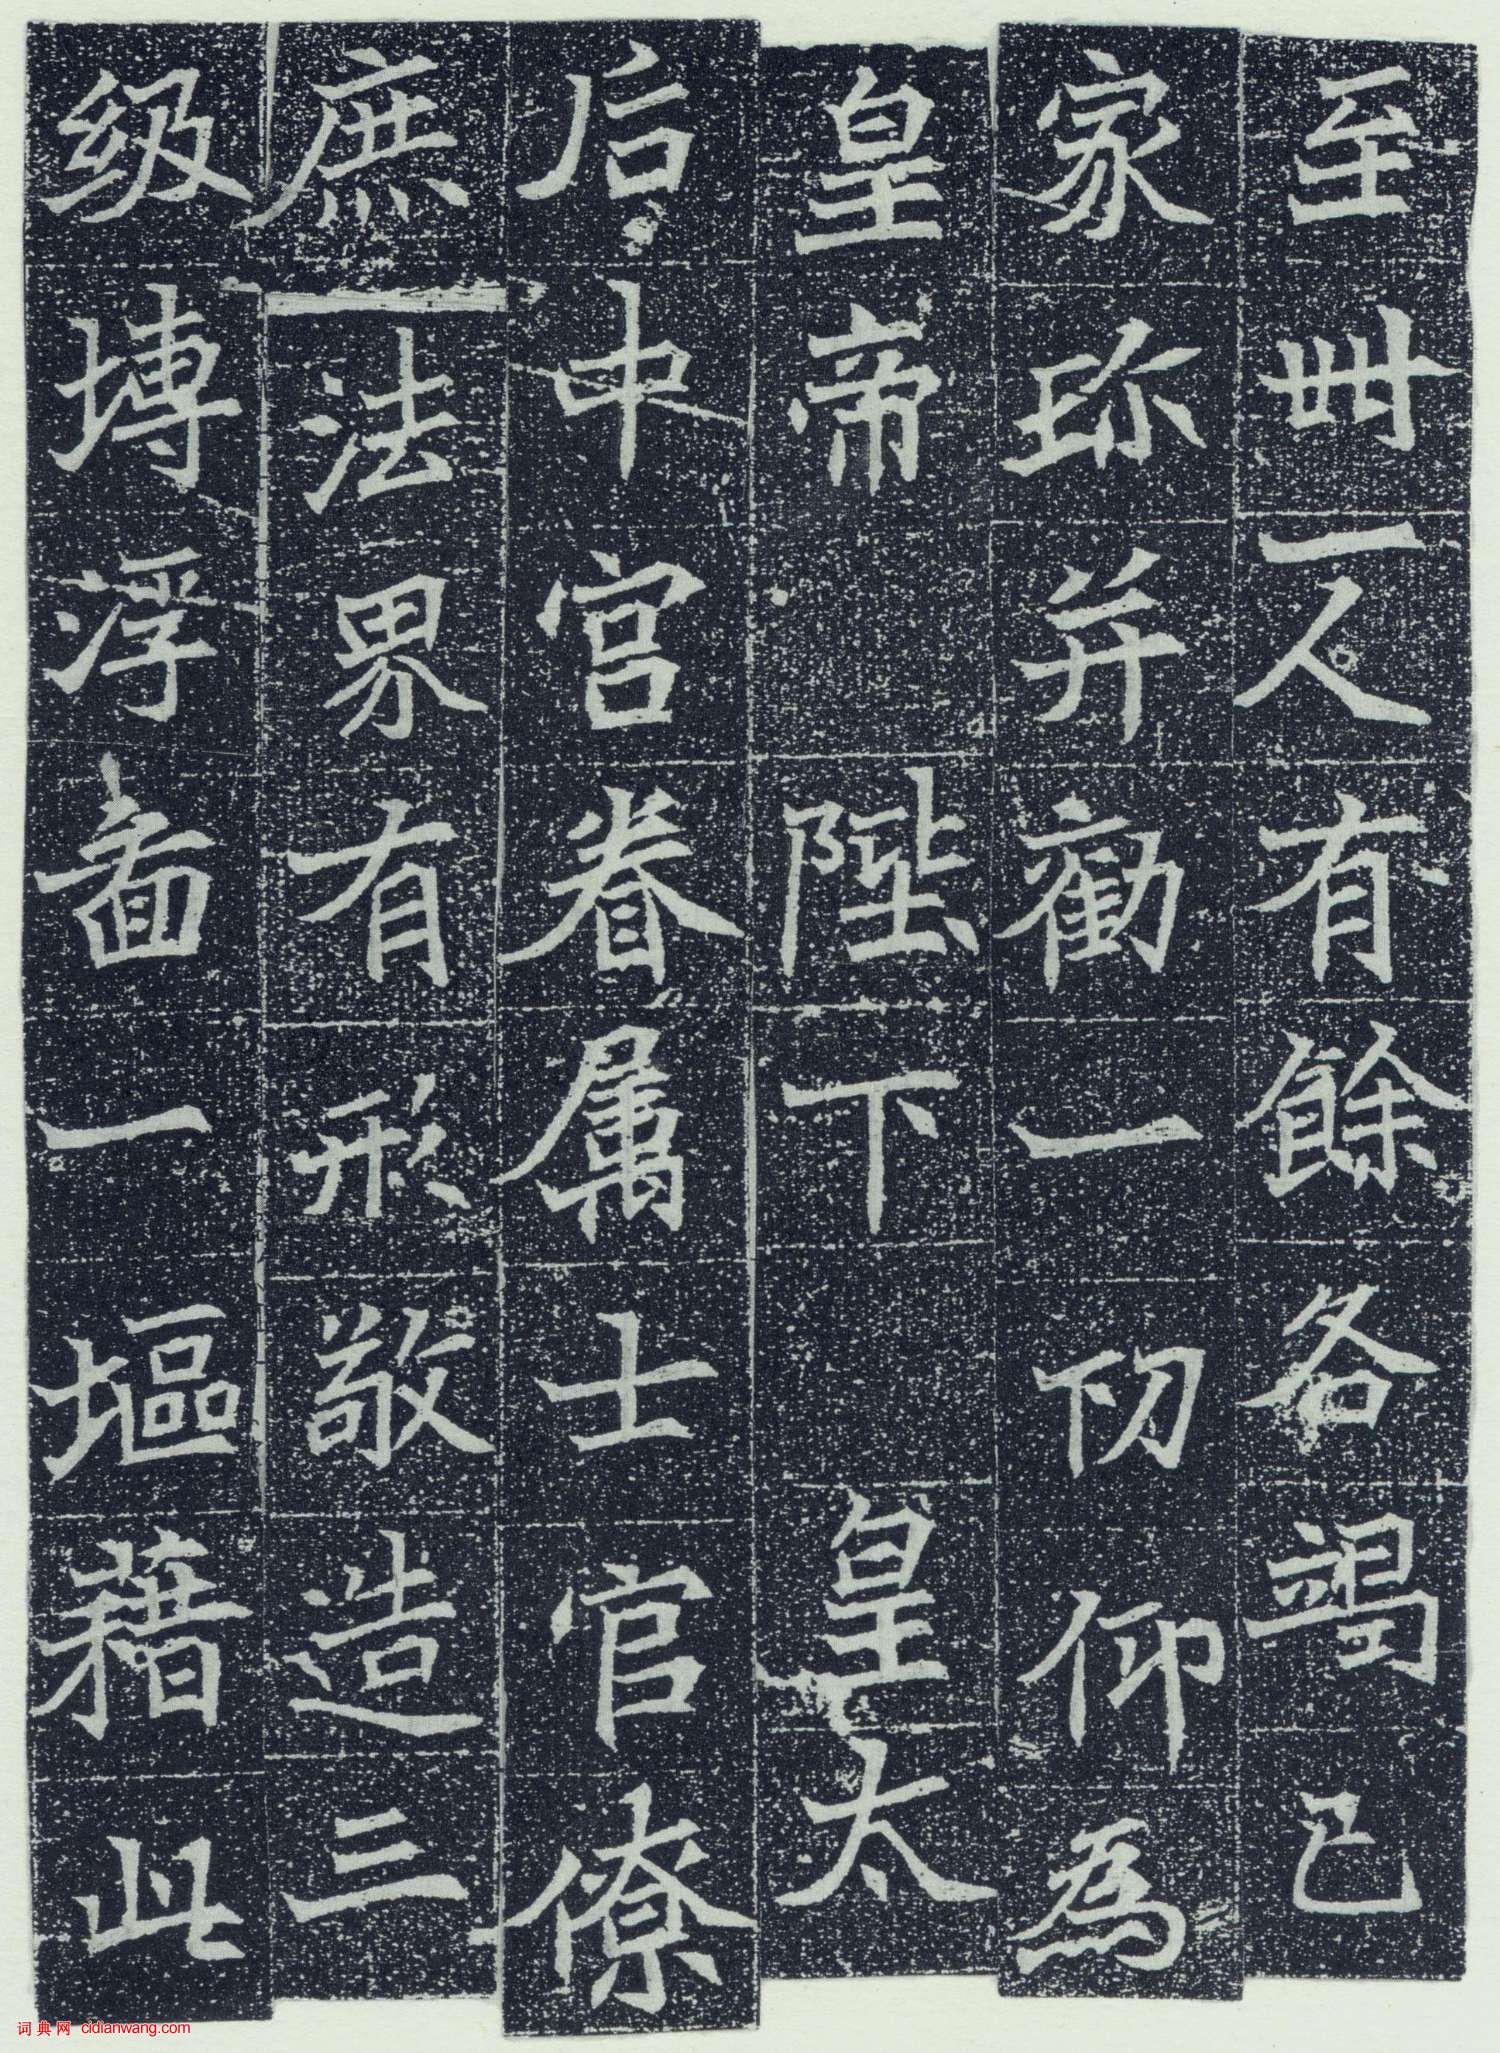 至卌一人有餘各竭己
家珎并勸一切仰為
皇帝陛下皇太
后中宮眷属士官僚
庶法界有形敬造三
级塼浮啚一塸藉此
词典网 cidianwang.com